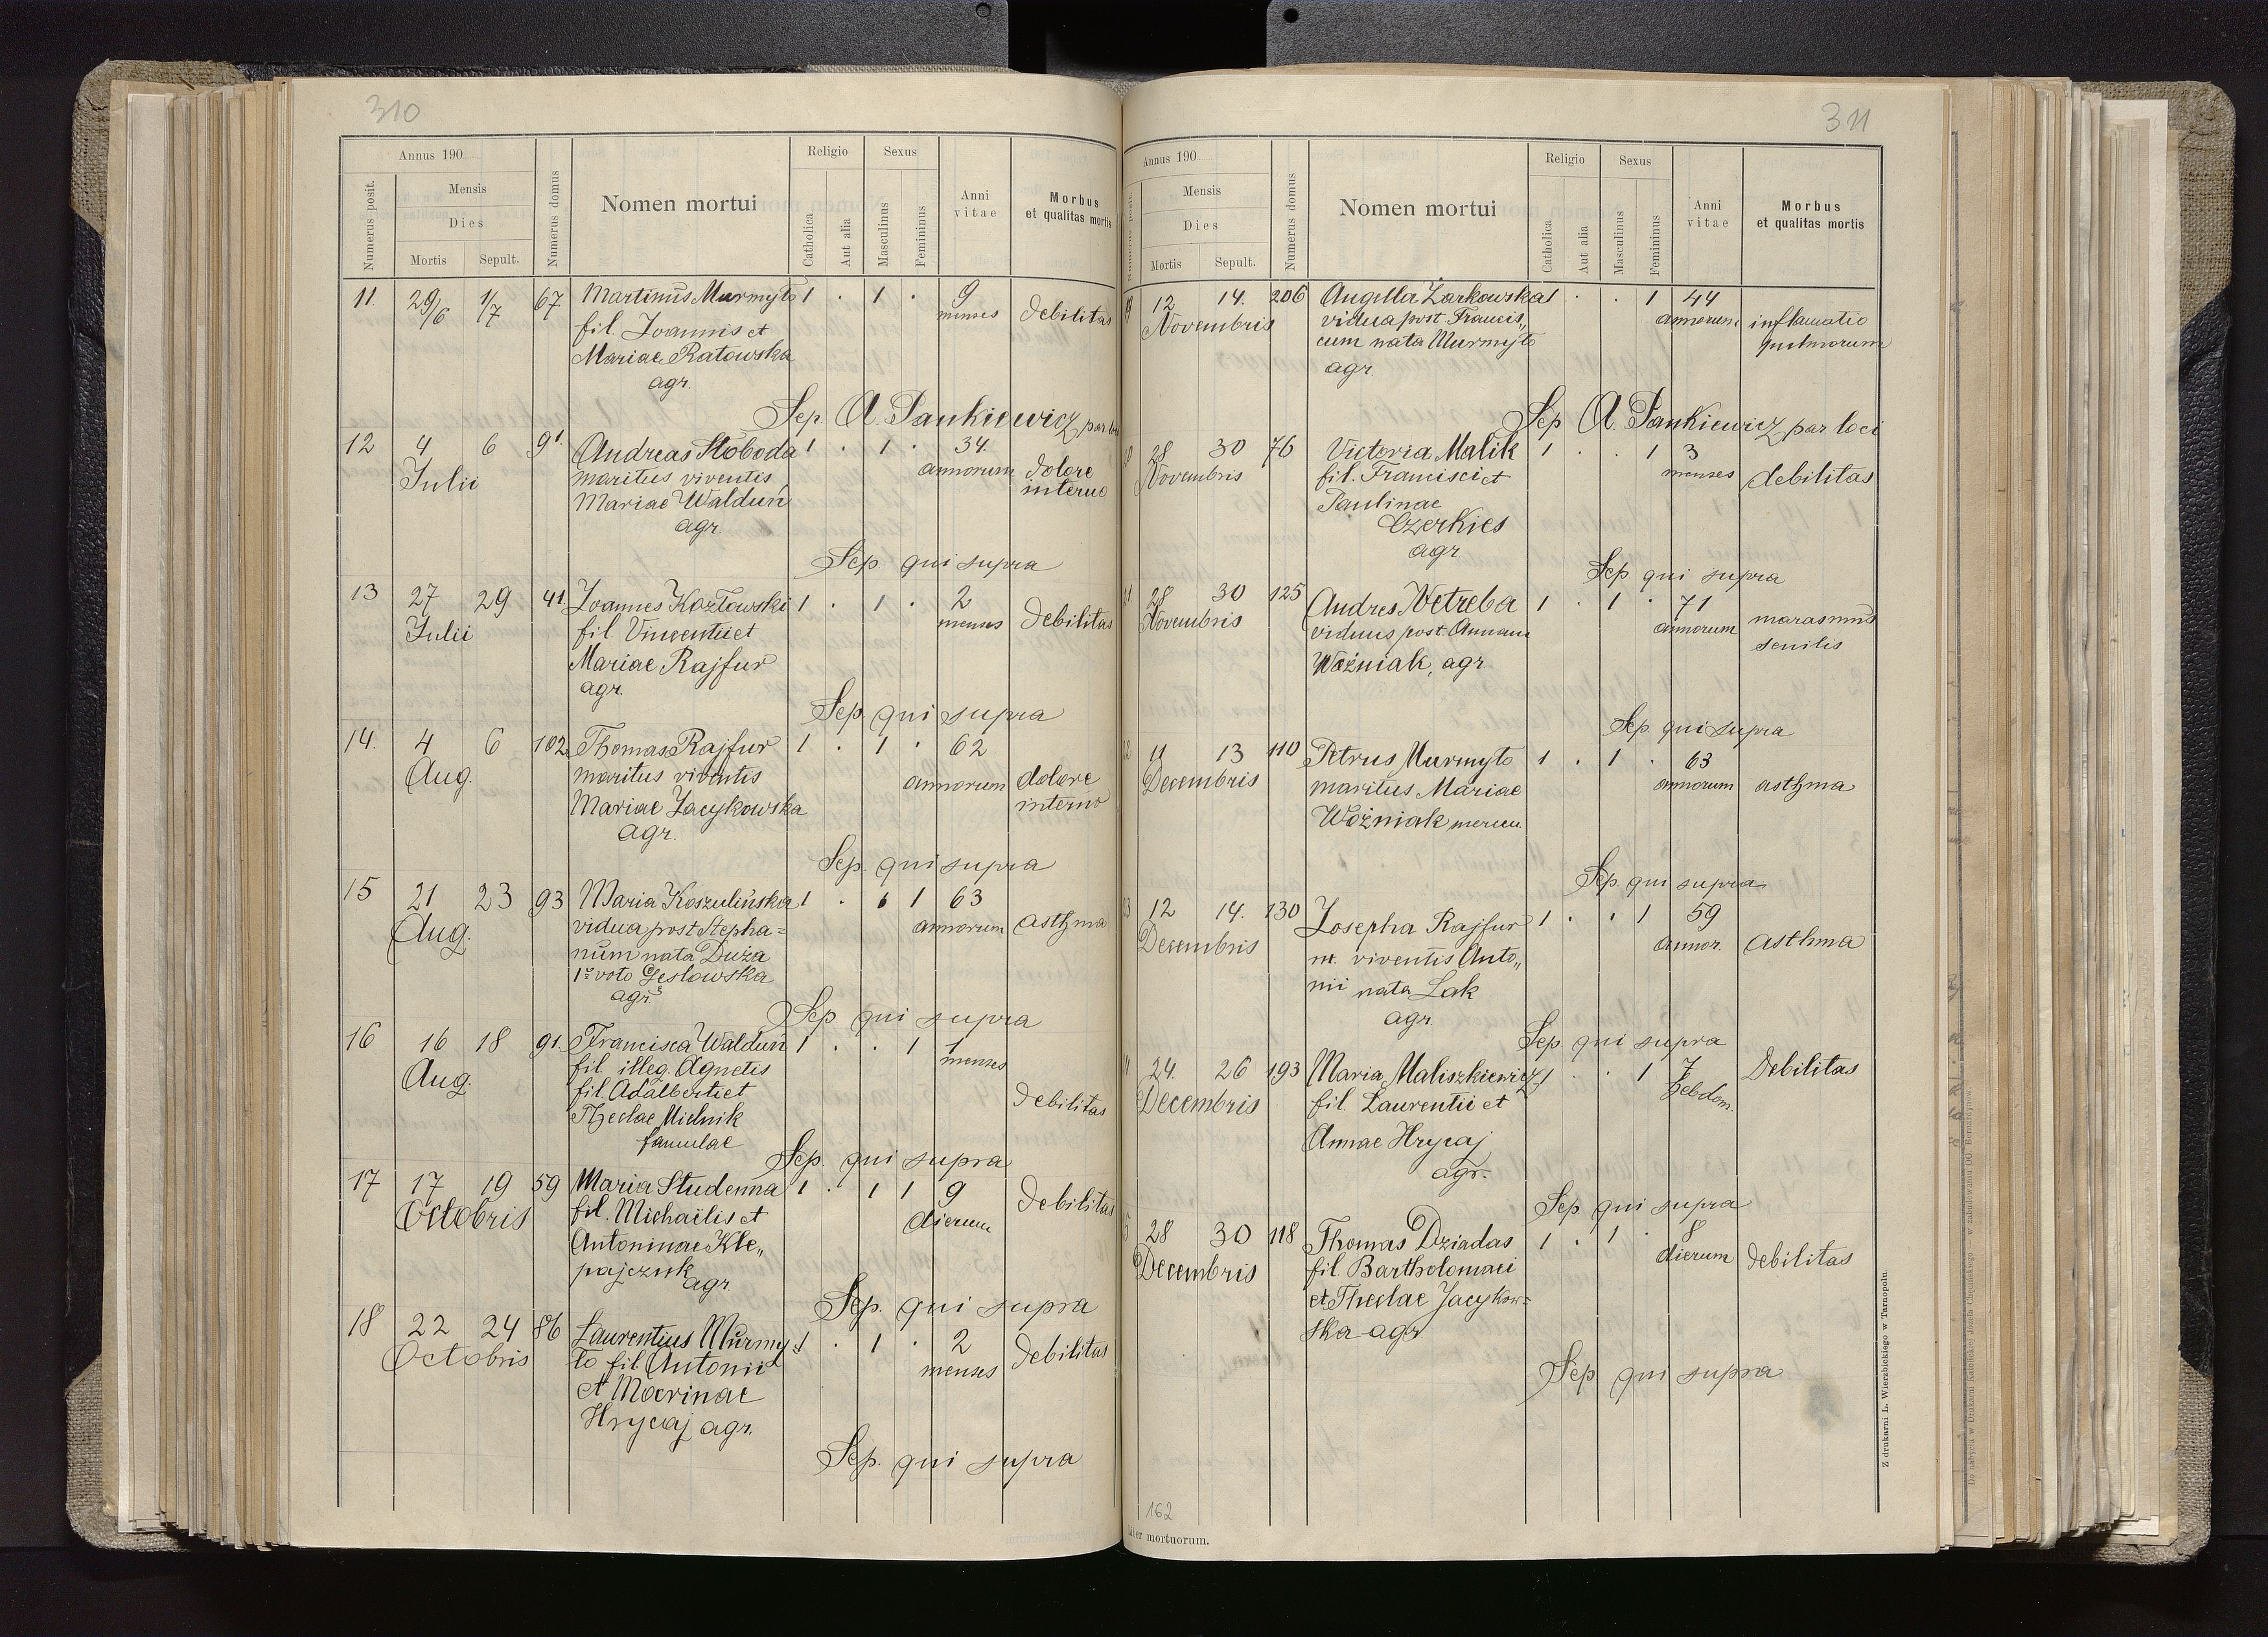 310
Annus 190
Numerus posit.
Mensis
Dies
Mortis Sepult.
Numerus domus
Nomen mortui
Religio
Catholica
Aut alia
Sexus
Masculinus
Femininus
Anni vitae
Morbus et qualitas mortis
11. 29/6 1/7 67 Martinus Murmyto 1 . 1 . 9
fil. Joannis et menses debilitas
Mariae Ratowska
agr.
Sep. A. Pankiewicz par lo
12 4 6 91 Andreas Słoboda 1 . 1 . 34.
Julii maritus viventis annorum dolore
Mariae Wałdun interno
agr.
Sep. qui supra
13 27 29 41 Joannes Kozłowski 1 . 1 . 2
Julii fil. Vincentii et menses debilitas
Mariae Rajfur
agr.
Sep. qui supra
14. 4 6 102 Thomas Rajfur 1 . 1 . 62
Aug. maritus viventis annorum dolore
Mariae Jacykowska interno
agr.
Sep. qui supra
15 21 23 93 Maria Koszulińska 1 . 1 1 63
Aug. vidua post Stepha= annorum asthma
num nata Duża
1º voto Gesłowska
agr.
Sep qui supra
16 16 18 91. Francisca Wałdun 1 . . 1 1
Aug. fil. illeg. Agnetis menses
fil. Adalberti et
Theclae Mielnik debilitas
famulae
Sep. qui supra
17 17 19 59 Maria Studenna 1 . 1 1 9
Octobris fil. Michaëlis et dierum debilitas
Antoninae Kle„
pajczuk
agr.
Sep. qui supra
18 22 24 86 Laurentius Murmy- 1 . 1 . 2
Octobris to fil. Antonii menses debilitas
et Marinae
Hrycaj agr.
Sep. qui supra
311
Annus 190
Numerus posit.
Mensis
Dies
Mortis Sepult.
Numerus domus
Nomen mortui
Religio
Catholica
Aut alia
Sexus
Masculinus
Femininus
Anni vitae
Morbus et qualitas mortis
9 12 14. 206 Angella Żarkowska 1 . . 1 44
Novembris vidua post Francis„ annorum inflamatio
cum nata Murmyto pulmorum
agr.
Sep A. Pankiewicz par loci
0 28 30 76 Victoria Malik 1 . . 1 3
Novembris fil. Francisci et menses debilitas
Paulinae
Czerkies
agr.
Sep qui supra
1 28 30 125 Andres Wetreba 1 . 1 . 71
Novembris viduus post Annam annorum marasmus
Woźniak, agr. senilis
Sep. qui supra
2 11 13 110 Petrus Murmyto 1 . 1 . 63
Decembris maritus Mariae annorum asthma
Woźniak mercen.
Sep. qui supra
3 12 14. 130 Josepha Rajfur 1 . . 1 59
Decembris m. viventis Anto„ annor. asthma
nii nata Łak
agr.
Sep. qui supra
4 24. 26 193 Maria Maliszkiewicz 1 . . 1 7 Debilitas
Decembris fil. Laurentii et hebdom.
Annae Hrycaj
agr.
Sep. qui supra
5 28 30 118 Thomas Dziadas 1 . 1 . 8
Decembris fil. Bartholomaei dierum debilitas
et Theclae Jacykow=
ska agr
Sep. qui supra
162
Liber mortuorum.
Z drukarni L. Wierzbickiego w Tarnopolu.